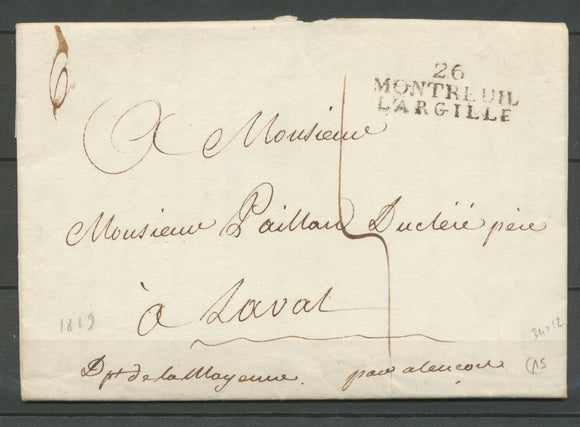 6
26
MONTREUIL
L'ARGILLE
A Monsieur
Monsieur Paillard Ducléré père
à Laval
1819
34 x 12
Dpt de la Mayenne. par alençon
15